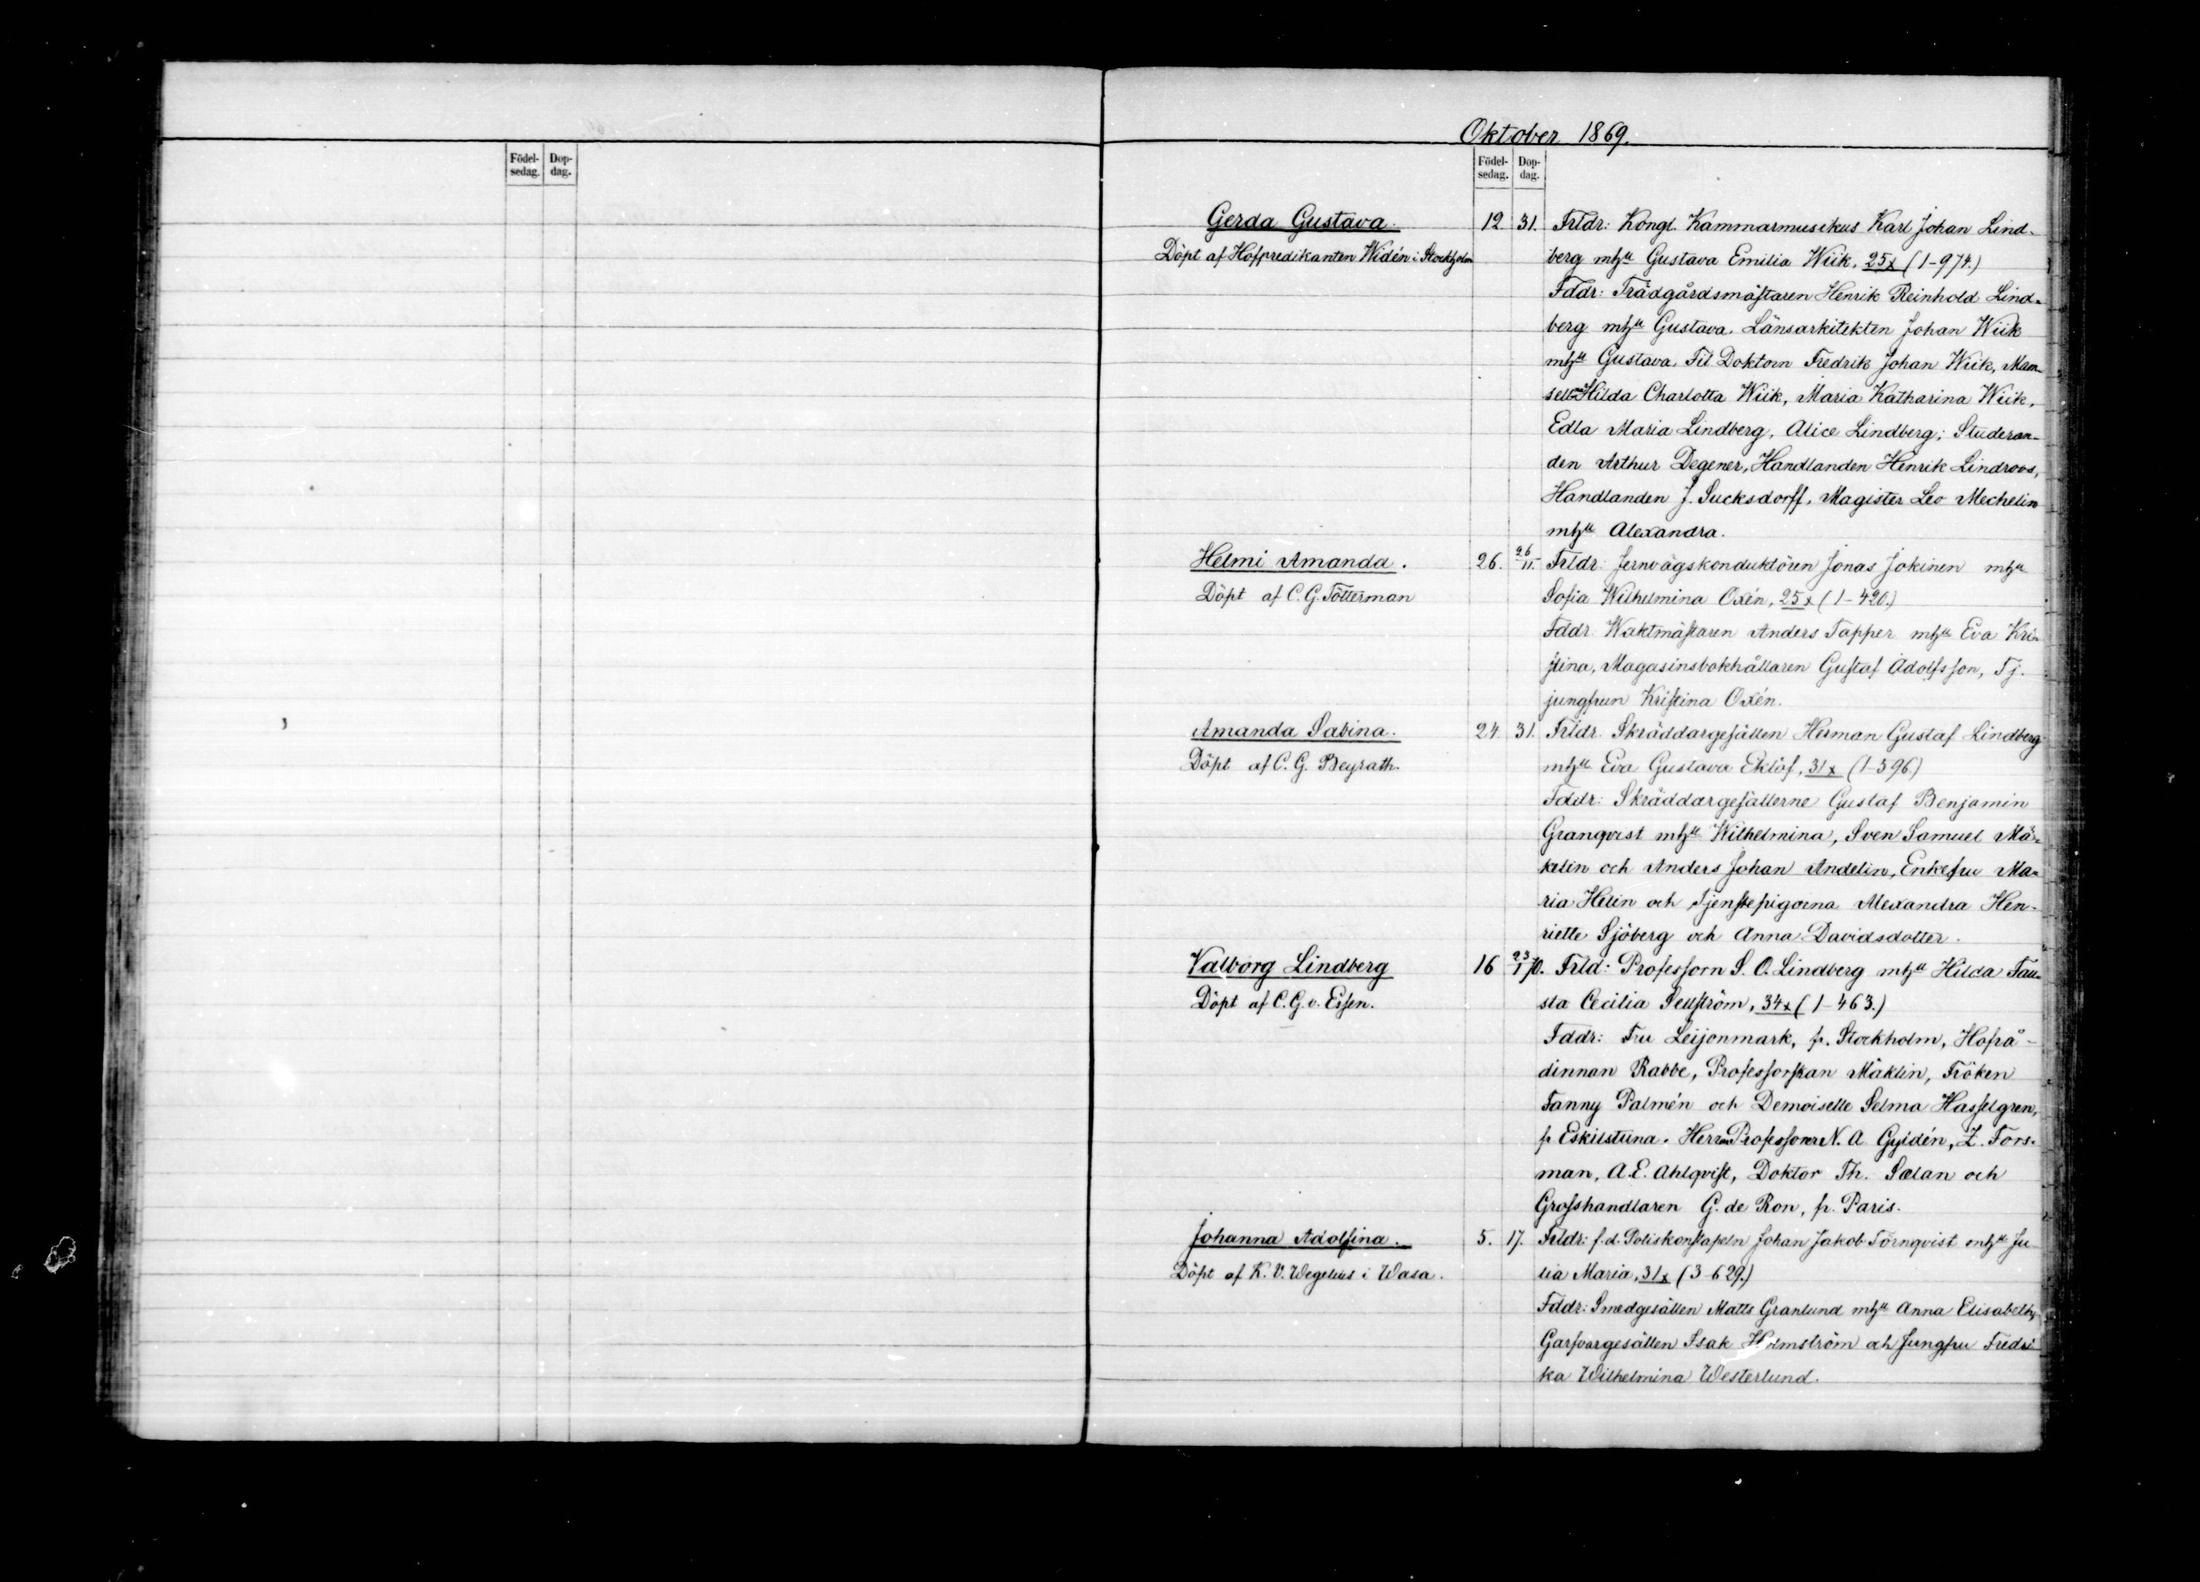 Oktober 1869.
Födel- Dop-
sedag. dag.
Födel- Dop-
sedag. dag.
Gerda Gustava. 12 31. Frldr: Kongl. Kammarmusikus Karl Johan Lind-
Döpt af Hofpredikanten Widén i Stockholm berg mhu Gustava Emilia Wiik, 25x (1-974.)
Fddr: Trädgårdsmästaren Henrik Reinhold Lind-
berg mhu Gustava. Länsarkitekten Johan Wiik
mhu Gustava, Fil Doktorn Fredrik Johan Wiik, Mam-
sell Hilda Charlotta Wiik, Maria Katharina Wiik,
Edla Maria Lindberg, Alice Lindberg; Studeran-
den Arthur Degener, Handlanden Henrik Lindroos,
Handlanden J. Sucksdorff, Magister Leo Mechelin
mhu Alexandra.
Helmi Amanda. 26. 26/11. Frldr: Jernvägskonduktören Jonas Jokinen mhu
Döpt af C. G. Tötterman Sofia Wilhelmina Oxén, 25x (1-420.)
Fddr. Waktmästaren Anders Tapper mhu Eva Kri-
stina, Magasinsbokhållaren Gustaf Adolfsson, Tj.
jungfrun Kristina Oxén.
Amanda Sabina. 24. 31. Frldr. Skräddargesällen Herman Gustaf Lindberg
Döpt af C. G. Beyrath. mhu Eva Gustava Eklöf, 31x (1-396)
Fddr: Skräddargesällerne Gustaf Benjamin
Granqvist mhu Wilhelmina, Sven Samuel Mä-
kelin och Anders Johan Andelin, Enkefru Ma-
ria Helin och Tjenstepigorna Alexandra Hen-
riette Sjöberg och Anna Davidsdotter.
Valborg Lindberg 16 23/1 70. Frld: Professorn S. O. Lindberg mhu Hilda Fau-
Döpt af C. G. v. Essen. sta Cecilia Sellström, 34x (1-463.)
Fddr: Fru Leijonmark, fr. Stockholm, Hofrå-
dinnan Rabbe, Professorskan Mäklin, Fröken
Fanny Palmén och Demoiselle Selma Hasselgren,
fr Eskilstuna. Herrar Professorer N. A. Gyldén, Z. Fors-
man, A. E. Ahlqvist, Doktor Th. Sælan och
Grosshandlaren G. de Ron, fr. Paris.
Johanna Adolfina. 5. 17. Frldr: f. d. Poliskonstapeln Johan Jakob Törnqvist mhu Ju
Döpt af K. V. Wegelius i Wasa. lia Maria, 31x (3-629.)
Fddr: Smedgesällen Matts Granlund mhu Anna Elisabeth,
Garfvargesällen Isak Holmström och Jungfru Fredri
ka Wilhelmina Westerlund.